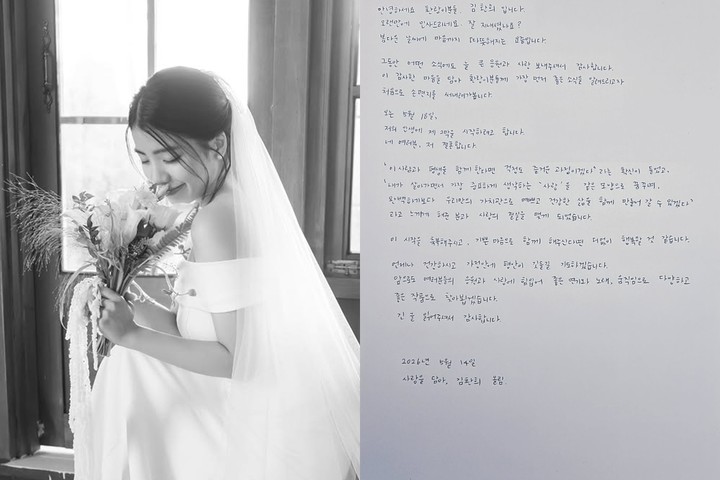 안녕하세요 환환이분들 김환희입니다.
오랜만에 인사드리네요. 잘 지내셨나요?
봄다운 날씨에 마음까지 따뜻해지는 요즘입니다.
그동안 어떤 소식에도 늘 큰 응원과 사랑 보내주셔서 감사합니다.
이 감사한 마음을 담아 환환이분들께 가장 먼저 좋은 소식을 알려드리고자
처음으로 손편지를 써내려가봅니다.
오는 5월 18일,
저의 인생에 제 2막을 시작하려고 합니다.
네 여러분, 저 결혼합니다.
"이 사람과 평생을 함께 한다면 걱정도 즐거운 과정이겠다" 라는 확신이 들었고,
"내가 살아가면서 가장 중요하게 생각하는 '사랑'을 같은 모양으로 꿈꾸며,
완벽함이 우리만의 가치관으로 예쁘고 건강한 삶을 함께 만들어 갈 수 있겠다"
라고 느끼게 해준 분과 사랑의 결실을 맺게 되었습니다.
이 시작을 축복해주시고, 기쁜 마음으로 함께 해주신다면 더없이 행복할 것 같습니다.
언제나 건강하시고 가정안에 평안이 깃들길 기도하겠습니다.
앞으로도 여러분들의 응원과 사랑에 힘입어 좋은 연기와 노래, 움직임으로 다양하고
좋은 작품으로 찾아뵙겠습니다.
긴 글 읽어주셔서 감사합니다.
2026년 5월 14일
사랑을 담아, 김환희 올림.